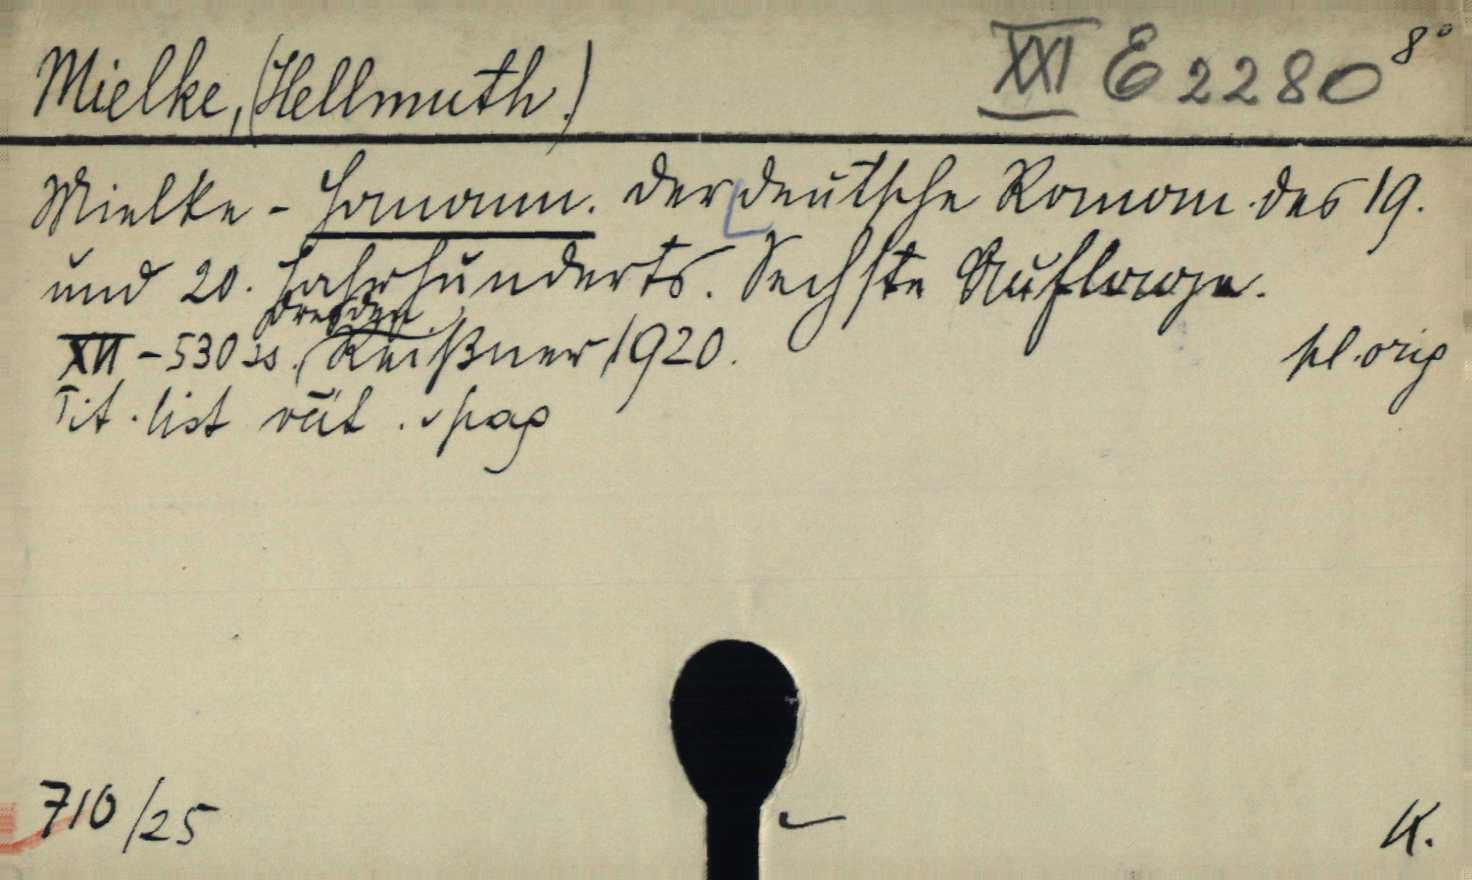 Mielke, (Hellmuth.)
XXI E 2280 8°
Mielke - Homann. Der deutsche Roman des 19.
und 20. Jahrhunderts. Sechste Auflage.
Dresden
XII - 530 ss. Reißner 1920.
pl. orig
Tit. list rüt. pap
710/25
K.